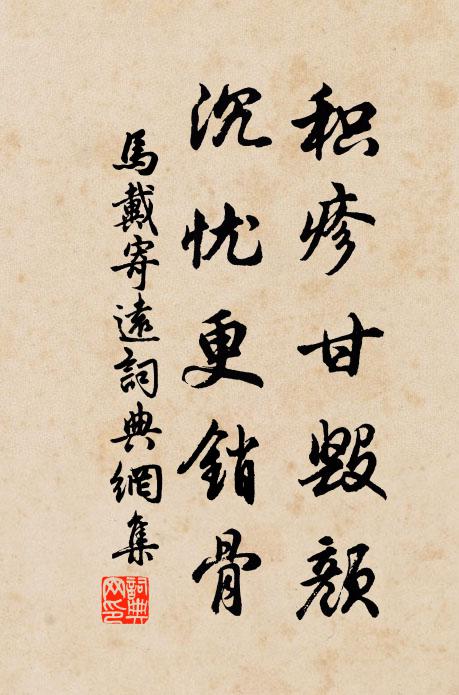 积疹甘毁颜
沉忧更销骨
馬戴寄遠詞典網集
詞典
网印